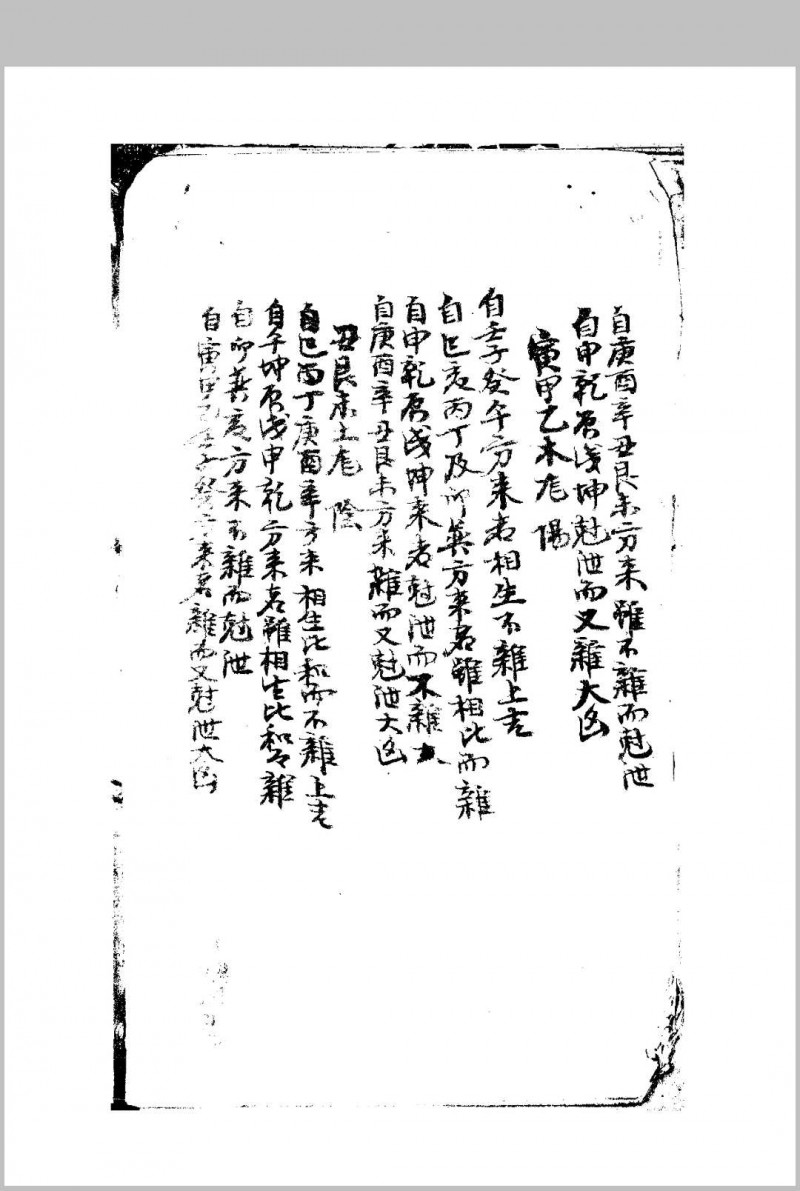 自庚酉辛丑艮未方来雖不雜而尅泄
自申乾辰戌坤尅泄而又雜大凶
寅甲乙木龙 陽
自壬子癸午方来者相生不雜上吉
自巳亥丙丁及卯巽方来者雖相比而雜
自申乾辰戌坤来者尅泄而不雜
自庚酉辛丑艮未方来雜而又尅泄大凶
丑艮未土龙 陰
自巳丙丁庚酉辛方来相生比和而不雜上吉
自午坤辰戌申乾方来者雖相生比和雜
自卯巽亥方来不雜而尅泄
自寅甲乙壬子癸方来者雜而又尅泄大凶